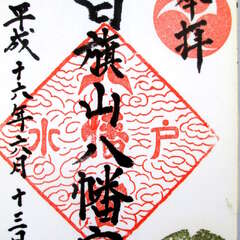 奉拝
白旗山八幡宮
水戸
平成十六年六月十三日